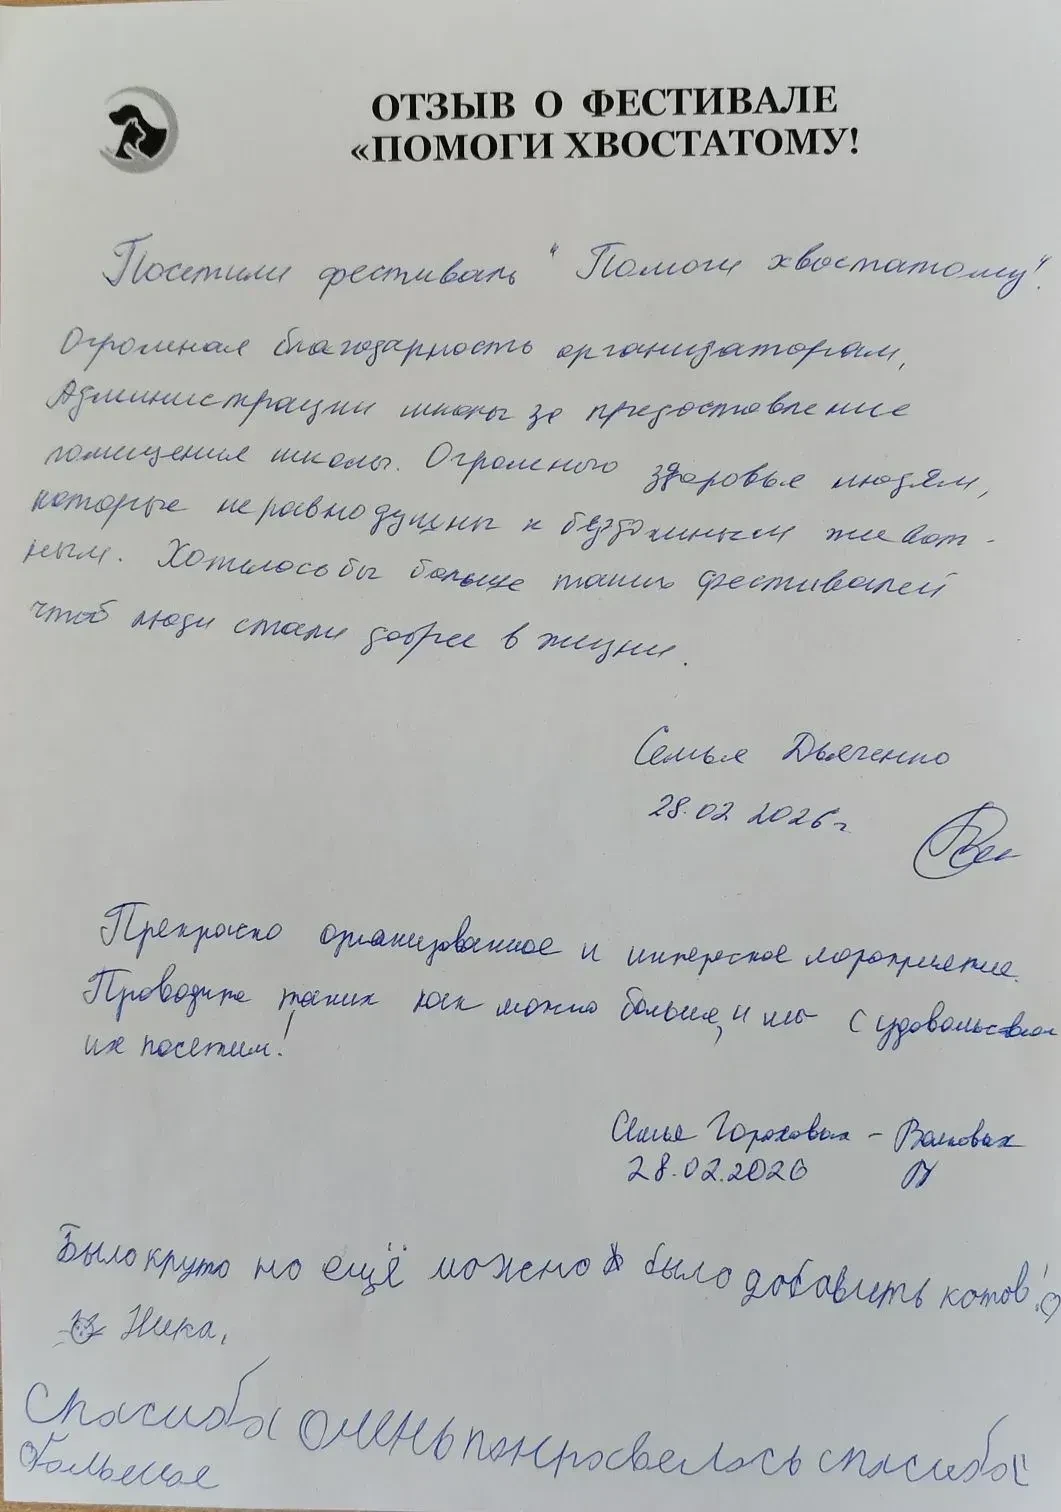 ОТЗЫВ О ФЕСТИВАЛЕ
«ПОМОГИ ХВОСТАТОМУ!
Посетили фестиваль "Помоги хвостатому".
Огромная благодарность организаторам,
Администрации школы за предоставление
помещения школы. Огромного здоровья людям,
которые неравнодушны к бездомным живот-
ным. Хотелось бы больше таких фестивалей
чтоб люди стали добрее в жизни.
Семья Дьяченко
28.02 2026 г
Прекрасно организованное и интересное мероприятие.
Проводите таких как можно больше, и мы с удовольствием
их посетим!
Семья Гороховых - Волковых
28.02.2026
Было круто но ещё можно было добавить котов!
Ника.
Спасиба очень понравелось спасиба!!
большое